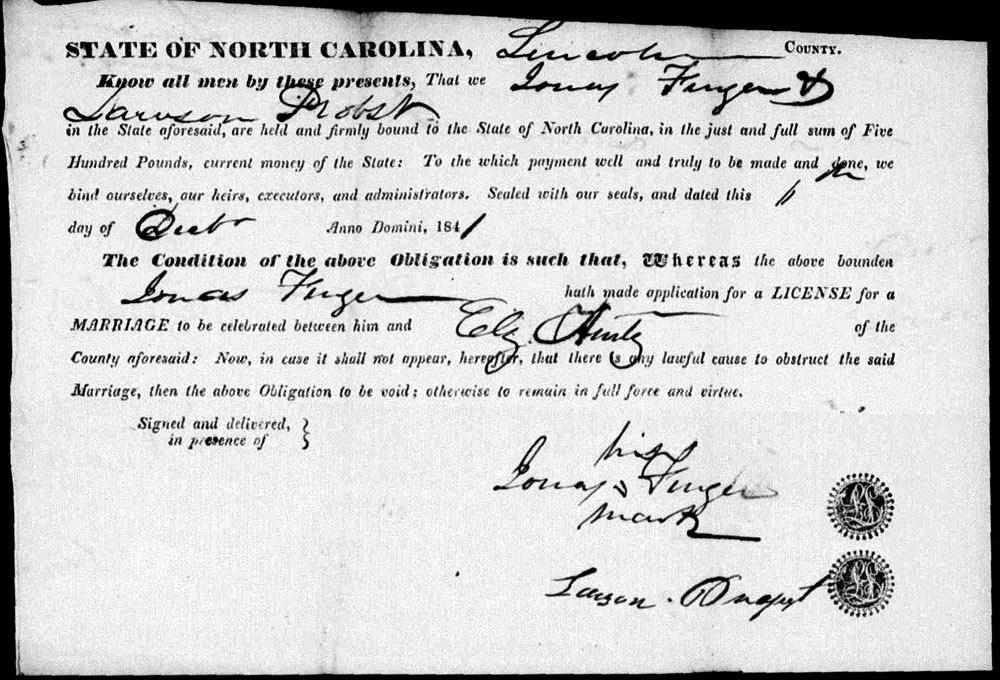 STATE OF NORTH CAROLINA, Lincoln COUNTY.
Know all men by these presents, That we Jonas Finger &
Lawson Probst
in the State aforesaid, are held and firmly bound to the State of North Carolina, in the just and full sum of Five
Hundred Pounds, current money of the State: To the which payment well and truly to be made and done, we
bind ourselves, our heirs, executors, and administrators. Sealed with our seals, and dated this
day of Anno Domini, 1841
The Condition of the above Obligation is such that, Whereas the above bounden
Jonas Finger hath made application for a LICENSE for a
MARRIAGE to be celebrated between him and Elz. of the
County aforesaid: Now, in case it shall not appear, hereafter, that there is any lawful cause to obstruct the said
Marriage, then the above Obligation to be void; otherwise to remain in full force and virtue.
Signed and delivered,
in presence of
his
Jonas x Finger
mark